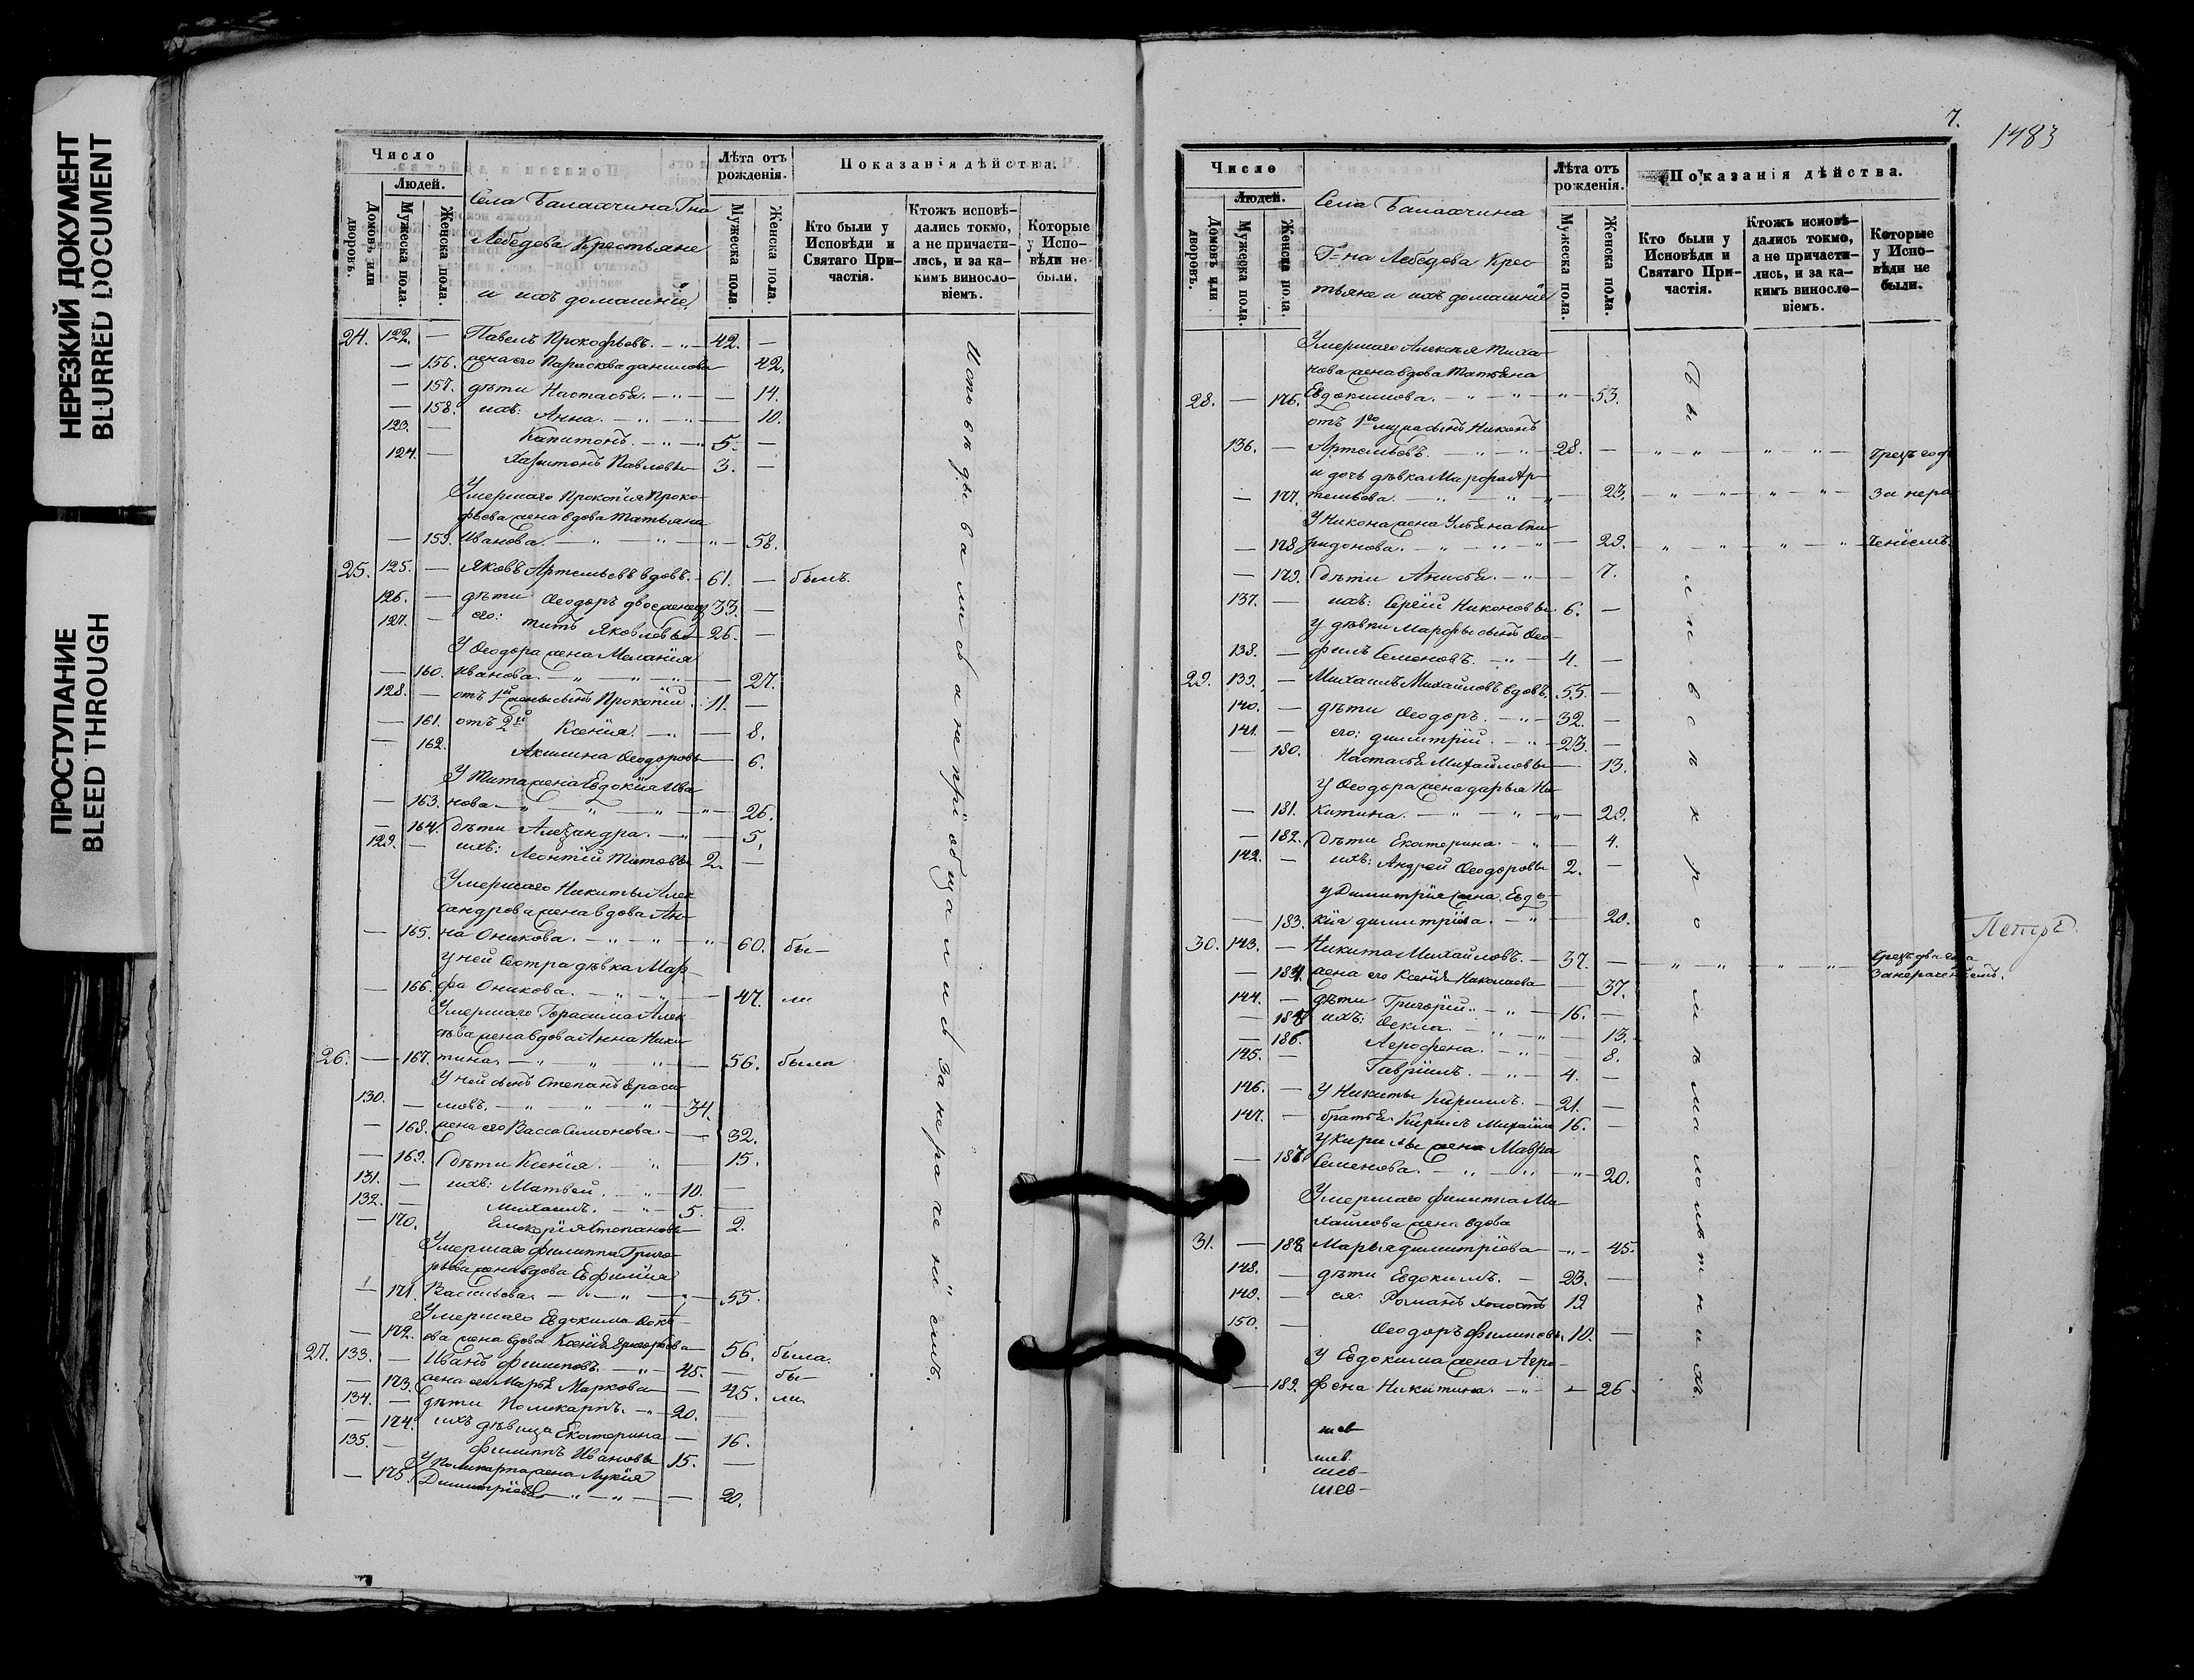 НЕРЕЗКИЙ ДОКУМЕНТ
BLURRED DOCUMENT
ПРОСТУПАНИЕ
BLEED THROUGH
Число
Людей.
Домовъ или дворовъ.
Мужеска пола.
Женска пола.
Села Балахчина Гна
Лебедева Крестьяне
и ихъ домашніе
Лѣта отъ рожденія.
Мужеска пола
Женска пола.
Показанія дѣйства.
Кто были у Исповѣди и Святаго Причастія.
Ктожъ исповѣдались токмо, а не причастились, и за какимъ винословіемъ.
Которые у Исповѣди не были.
24. 122. — Павелъ Прокофьевъ. — 42. —
— 156. жена его Параскева Данилова 42.
— 157. дѣти Настасья. — 14.
— 158. ихъ: Анна. — 10.
123. — Капитонъ. — 5. —
124. — Харитонъ Павловы 3. —
Умершаго Прокопія Проко-
фьева жена вдова Татьяна
— 159. Иванова. — 58.
25. 125. — Яковъ Артемьевъ вдовъ. 61. — былъ.
126. — дѣти Ѳеодоръ двоеженец 33. —
127. — его: Титъ Яковлевы 26. —
У Ѳеодора жена Меланія
— 160. Иванова. — 27.
128. — отъ 1й жены сынъ Прокопій. 11. —
— 161. отъ 2й Ксенія. — 8.
— 162. Акилина Ѳеодоровы 6.
У Тита жена Евдокія Ива-
— 163. нова — 26.
— 164. дѣти Александра. — 5.
129. — ихъ: Леонтій Титовы 2. —
Умершаго Никиты Алек-
сандрова жена вдова Ан-
— 165. на Оникова. — 60. бы-
у ней сестра дѣвка Мар-
— 166. фа Оникова. — 47. ли
Умершаго Герасима Алек-
ѣева жена вдова Анна Ники-
26. — 167. тина. — 56. была
У ней сынъ Степанъ Ераси-
130. — мовъ. — 34.
— 168. жена его Васса Симонова. — 32.
— 169. дѣти Ксенія. — 15.
131. — ихъ: Матвей. — 10. —
132. — Михаилъ. — 5. —
— 170. Степановы 2.
Умершаго Филиппа Григо-
рьева жена вдова Евфимія
— 171. Васильева — 55.
Умершаго Евдокима
— 172. ова жена вдова Ксенія Григорьева 56. была.
27. 133. — Иванъ Филиповъ. — 45. — бы-
— 173. жена его Марья Маркова — 45. ли
134. — дѣти Поликарпъ. — 20. —
— 174. ихъ дѣвица Екатерина — 16.
135. — Филиппъ Ивановы 15. —
У Поликарпа жена Лукія
— 175. Димитріева — 20.
Исповѣдывались а не пріобщались за нераченіемъ.
7.
1483
Число
Людей.
Домовъ или дворовъ.
Мужеска пола.
Женска пола.
Села Балахчина
Г=на Лебедева Крес-
тьяне и ихъ домашніе
Лѣта отъ рожденія.
Мужеска пола.
Женска пола.
Показанія дѣйства.
Кто были у Исповѣди и Святаго Причастія.
Ктожъ исповѣдались токмо, а не причастились, и за какимъ винословіемъ.
Которые у Исповѣди не были.
Умершаго Алексѣя Тиха-
нова жена вдова Татьяна
28. — 176. Евдокимова. — 53.
отъ 1го мужа сынъ Никонъ
136. — Артемьевъ. — 28. —
и дочь дѣвка Марфа Ар-
— 177. темьева. — 23. За нера
У Никона жена Ульяна Спи-
— 178. ридонова. — 29. ченіемъ.
— 179. дѣти Анисья. — 7.
137. — ихъ: Сергій Никоновы 6. —
У дѣвки Марфы сынъ Ѳео-
138. — филъ Семеновъ. — 4. —
29. 139. — Михаилъ Михайловъ вдовъ. 55. —
140. — дѣти Ѳеодоръ. — 32. —
141. — его: Димитрій. — 23. —
— 180. Настасья Михайловы 13.
У Ѳеодора жена Дарья Ни-
— 181. китина. — 29.
— 182. дѣти Екатерина. — 4.
142. — ихъ: Андрей Ѳеодоровы 2. —
У Димитрія жена Евдо-
— 183. кія Димитріева. — 20.
30. 143. — Никита Михайловъ. — 37. —
за нераченіемъ.
— 184. жена его Ксенія Николаева — 37.
144. — дѣти Григорій. — 16. —
— 185 ихъ: Ѳекла. — 13.
— 186. Агрофена. — 8.
145. — Гавріилъ. — 4. —
146. — У Никиты Кирилъ. — 21. —
147. — братья Кирилъ Михайлы 16. —
У Кирилы жена Мавра
— 187 Семенова. — 20.
Умершаго Филиппа Ми-
хайлова жена вдова
31. — 188. Марья Димитріева — 45.
148. — дѣти Евдокимъ. — 23. —
149. — ея: Романъ холостъ 19.
150. — Ѳеодоръ Филиповы. 10. —
У Евдокима жена Агро-
— 189. фена Никитина. — 26
Были всѣ кромѣ малолѣтнихъ
Петръ